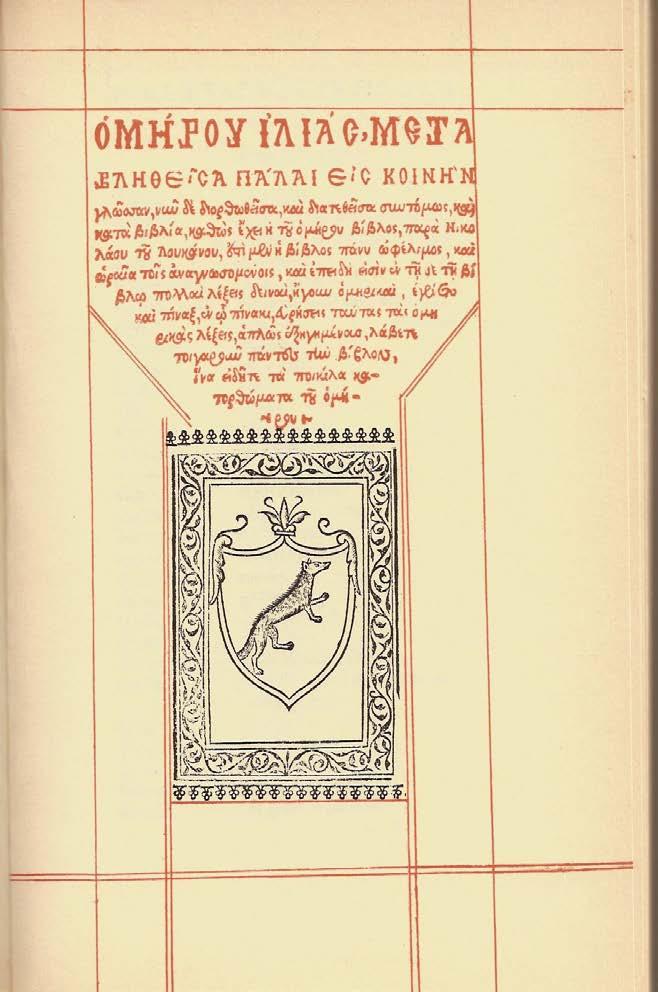 ὉΜΉΡΟΥ ἸΛΙΆΣ, ΜΕΤΑ
ΒΛΗΘΕῖΣΑ ΠΆΛΑΙ ΕἸΣ ΚΟΙΝῊΝ
γλῶσσαν, νῦν δὲ διορθωθεῖσα, καὶ διατεθεῖσα συντόμως, καὶ
κατὰ βιβλία, καθὼς ἔχει ἡ τοῦ ὁμήρου βίβλος, παρὰ Νικο
λάου τοῦ Λουκάνου, ὅτι μὲν ἡ βίβλος πάνυ ὠφέλιμος, καὶ
ὡραῖα τοῖς ἀναγνωσομένοις, καὶ ἐπειδὴ εἰσὶν ἐν τῇδε τῇ βί
βλῳ πολλαὶ λέξεις δειναὶ, ἤγουν ὁμηρικαὶ, ἐγένετο
καὶ πίναξ, ἐν ᾧ πίνακι, εὑρήσεις ταύτας τὰς ὁμη
ρικὰς λέξεις, ἁπλῶς ἐξηγημένας, λάβετε
τοιγαροῦν πάντες τὴν βίβλον,
ἵνα εἰδῆτε τὰ ποικίλα κα-
τορθώματα τοῦ ὁμή-
ρου